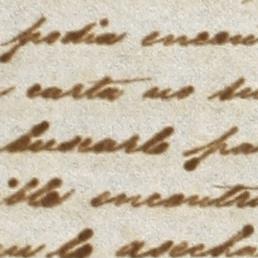 podia encon
carta no su
buscarle pa
ible encontra
le asecha